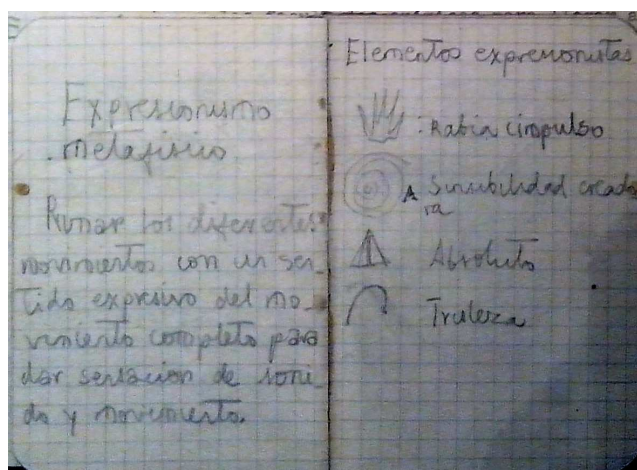 Expresionismo
metafísico
Rimar los diferentes
movimientos con un sen-
tido expresivo del mo-
vimiento completo para
dar sensación de soni-
do y movimiento.
Elementos expresionistas
: Rabia (impulso
A Sensibilidad creado
ra
Absoluto
Tristeza